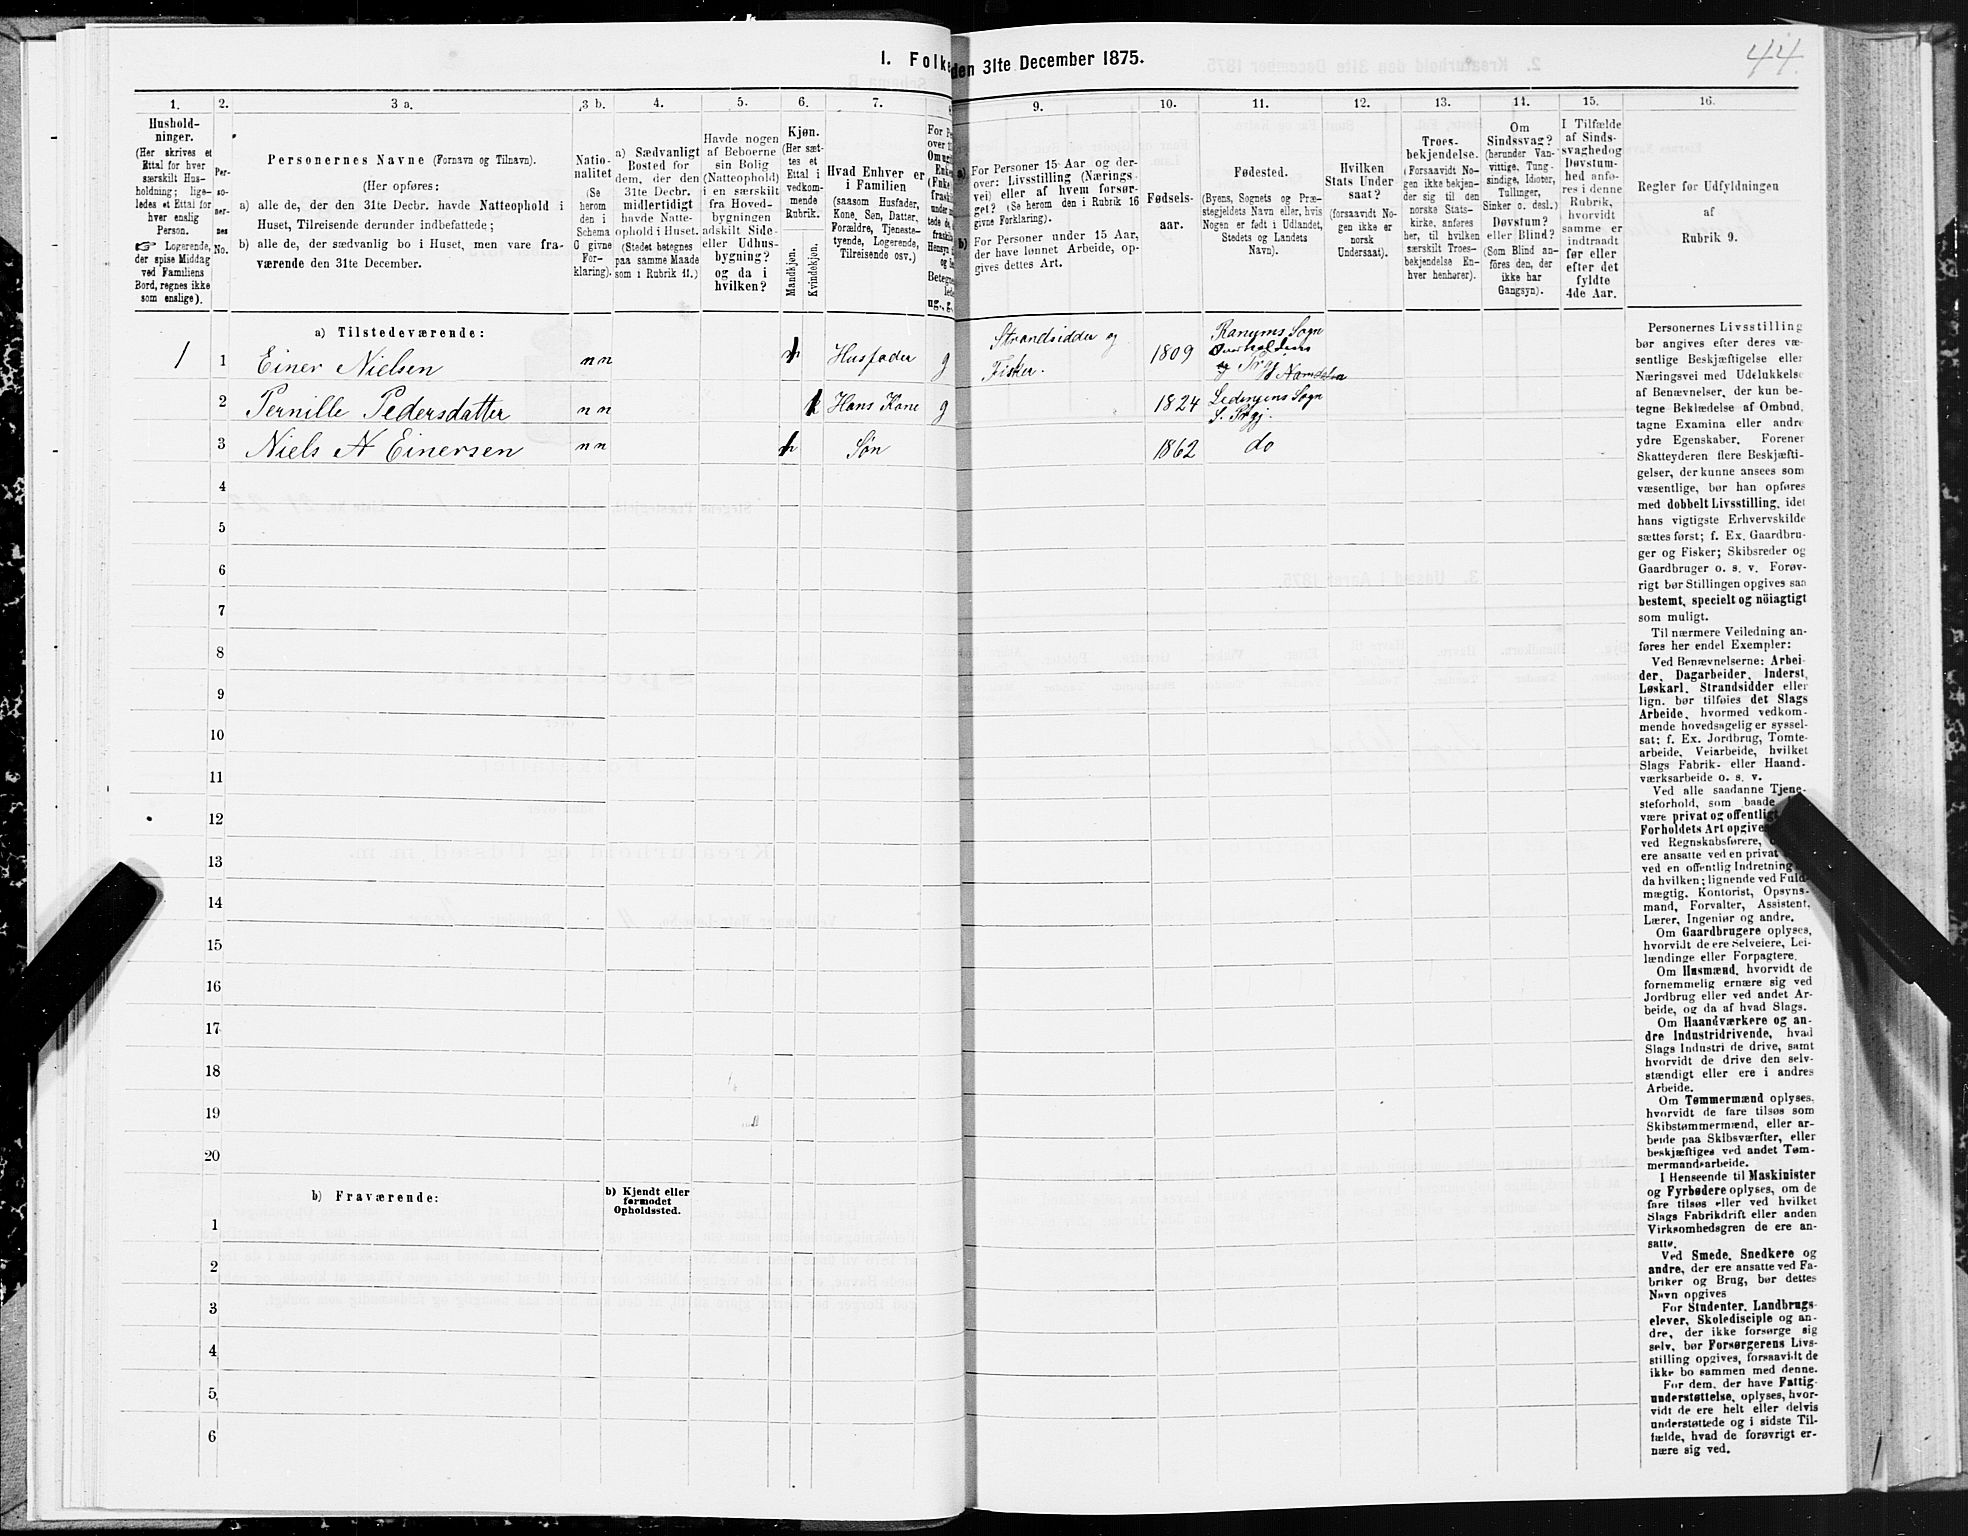 44.
1. Folke
den 31te December 1875.
1. 2. 3 a. 3 b. 4. 5. 6. 7. 8
9. 10. 11. 12. 13. 14. 15. 16.
Hushold-
ninger.
(Her skrives et
Ettal for hver
særskilt Hus-
holdning; lige-
ledes et Ettal for
hver enslig
Person.
☞ Logerende,
der spise Middag
ved Familiens
Bord, regnes ikke
som enslige).
Per-
so-
ner-
nes
No.
Personernes Navne (Fornavn og Tilnavn).
(Her opføres:
a) alle de, der den 31te Decbr. havde Natteophold i
Huset, Tilreisende derunder indbefattede;
b) alle de, der sædvanlig bo i Huset, men vare fra-
værende den 31te December.
Natio-
nalitet
(Se
herom
den i
Schema
G givne
For-
klaring).
a) Sædvanligt
Bosted for
dem, der den
31te Decbr.
midlertidigt
havde Natte-
ophold i Huset.
(Stedet betegnes
paa samme Maade
som i Rubrik 11.)
Havde nogen
af Beboerne
sin Bolig
(Natteophold)
i en særskilt
fra Hoved-
bygningen
adskilt Side-
eller Udhus-
bygning?
og da i
hvilken?
Kjøn.
(Her sæt-
tes et
Ettal i
vedkom-
mende
Rubrik.
Mandkjøn.
Kvindekjøn.
Hvad Enhver er
i Familien
(saasom Husfader,
Kone, Søn, Datter,
Forældre, Tjeneste-
tyende, Logerende,
Tilreisende osv.)
For Pe
over 1
Omugi
Enke
(Fnke
fraski
under n
tede de
fraski
Hensyn
og se
Betegne
lede
ug., g.,
a) For Personer 15 Aar og der-
over: Livsstilling (Nærings-
vei) eller af hvem forsør-
get? (Se herom den i Rubrik 16
givne Forklaring).
b) For Personer under 15 Aar,
der have lønnet Arbeide, op-
gives dettes Art.
Fødsels-
aar.
Fødested.
(Byens, Sognets og Præ-
stegjeldets Navn eller, hvis
Nogen er født i Udlandet,
Stedets og Landets
Navn).
Hvilken
Stats Under
saat?
(forsaavidt No-
gen ikke er
norsk
Undersaat).
Troes-
bekjendelse.
(Forsaavidt No-
gen ikke bekjen-
der sig til den
norske Stats-
kirke, anføres
her, til hvilken
særskilt Troes-
bekjendelse En-
hver henhører).
Om
Sindssvag?
(herunder Van-
vittige, Tung-
sindige, Idioter,
Tullinger,
Sinker o. desl.)
Døvstum?
eller Blind?
(Som Blind an-
føres den, der
ikke har
Gangsyn).
I Tilfælde
af Sinds-
svaghedog
Døvstum-
hed anfø-
res i denne
Rubrik,
hvorvidt
samme er
indtraadt
før eller
efter det
fyldte
4de Aar.
Regler for Udfyldningen
af
Rubrik 9.
a) Tilstedeværende:
1 1 Einer Nielsen n n 1 Husfader g Strandsidder og Fisker. 1809 Ranums Sogn
2 Pernille Pedersdatter n n Hans Kone g 1824 Sogn
3 Niels N Einersen n n 1 Søn 1862 do
4
5
6
7
8
9
10
11
12
13
14
15
16
17
18
19
20
b) Fraværende:
b) Kjendt eller
formodet
Opholdssted.
1
2
3
4
5
6
Personernes Livsstilling
bør angives efter deres væ-
sentlige Beskjæftigelse eller
Næringsvei med Udelukkelse
af Benævnelser, der kun be-
tegne Beklædelse af Ombud,
tagne Examina eller andre
ydre Egenskaber. Forener
Skatteyderen flere Beskjæfti-
gelser, der kunne ansees som
væsentlige, bør han opføres
med dobbelt Livsstilling, idet
hans vigtigste Erhvervskilde
sættes først; f. Ex. Gaardbru-
ger og Fisker; Skibsreder og
Gaardbruger o. s. v. Forøv-
rigt bør Stillingen opgives saa
bestemt, specielt og nöiagtigt
som muligt.
Til nærmere Veiledning an-
føres her endel Exempler:
Ved Benævnelserne: Arbei-
der, Dagarbeider, Inderst,
Løskarl, Strandsidder eller
lign. bør tilføies det Slags
Arbeide, hvormed vedkom-
mende hovedsagelig er syssel-
sat; f. Ex. Jordbrug, Tomte-
arbeide, Veiarbeide, hvilket
Slags Fabrik- eller Haand-
værksarbeide o. s. v.
Ved alle saadanne Tjene-
steforhold, som baade
være privat og offentligt
Forholdets Art opgive
ved Regnskabsførere,
ere ansatte ved en privat
ved en offentlig Indretning
da hvilken; lignende ved Fuld-
mægtig, Kontorist, Opsyns-
mand, Forvalter, Assistent,
Lærer, Ingeniør og andre.
Om Gaardbrugere oplyses,
hvorvidt de ere Selveiere, Lei-
lændinge eller Forpagtere.
Om Husmænd, hvorvidt de
fornemmelig ernære sig ved
Jordbrug eller ved andet Ar-
beide, og da af hvad Slags.
Om Haandværkere og an-
dre Industridrivende, hvad
Slags Industri de drive, samt
hvorvidt de drive den selv-
stændigt eller ere i andres
Arbeide.
Om Tømmermænd oplyses,
hvorvidt de fare tilsøs som
Skibstømmermænd, eller ar-
beide paa Skibsværfter, eller
beskjæftiges ved andet Tøm-
mermandsarbeide.
I Henseende til Maskinister
og Fyrbødere oplyses, om de
fare tilsøs eller ved hvilket
Slags Fabrikdrift eller anden
Virksomhedsgren de ere an-
satte.
Ved Smede, Snedkere og
andre, der ere ansatte ved Fa-
briker og Brug, bør dettes
Navn opgives
For Studenter, Landbrugs-
elever, Skoledisciple og an-
dre, der ikke forsørge sig
selv, bør Forsørgerens Livs-
stilling opgives, forsaavidt de
ikke bo sammen med denne.
For dem, der have Fattig-
understøttelse, oplyses, hvor-
vidt de ere helt eller delvis
understøttede og i sidste Til-
fælde, hvad de forøvrigt er-
nære sig ved.